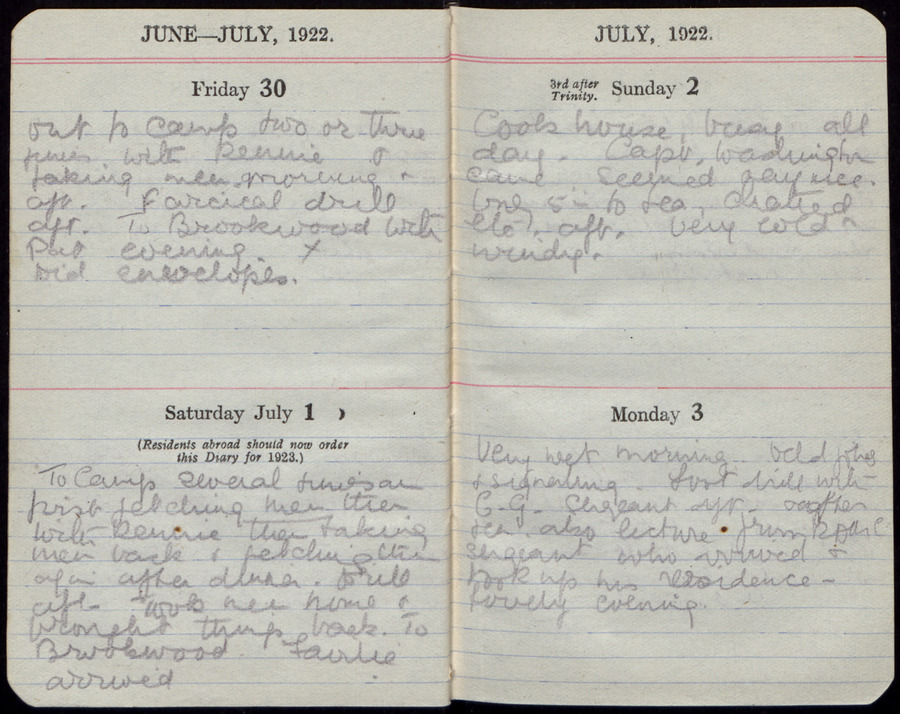 JUNE—JULY, 1922.
Friday 30
out to camp two or three
times with Rennie &
taking men morning &
aft. Farcical drill
aft. To Brookwood with
Pat evening. X
Did envelopes.
Saturday July 1
(Residents abroad should now order
this Diary for 1923.)
To Camp several times am
first fetching men then
with Rennie then taking
men back & fetching them
again after dinner. Drill
aft. Took men home &
brought things back. To
Brookwood. Fairlie
arrived
JULY, 1922.
3rd after
Trinity.
Sunday 2
Cook house, busy all
day. Capt.
came seemed very nice.
to tea, chatted
etc, aft. Very cold &
windy.
Monday 3
Very wet morning. Odd jobs
& signalling. Foot drill with
C.G. Sergeant aft. & after
tea. also lecture from
sergeant who arrived &
took up his residence –
lovely evening.